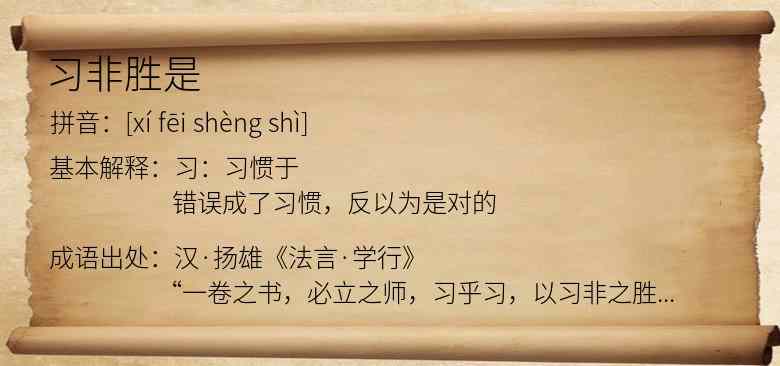 习非胜是
拼音：[xí fēi shèng shì]
基本解释：习：习惯于
错误成了习惯，反以为是对的
成语出处：汉·扬雄《法言·学行》
“一卷之书，必立之师，习乎习，以习非之胜...